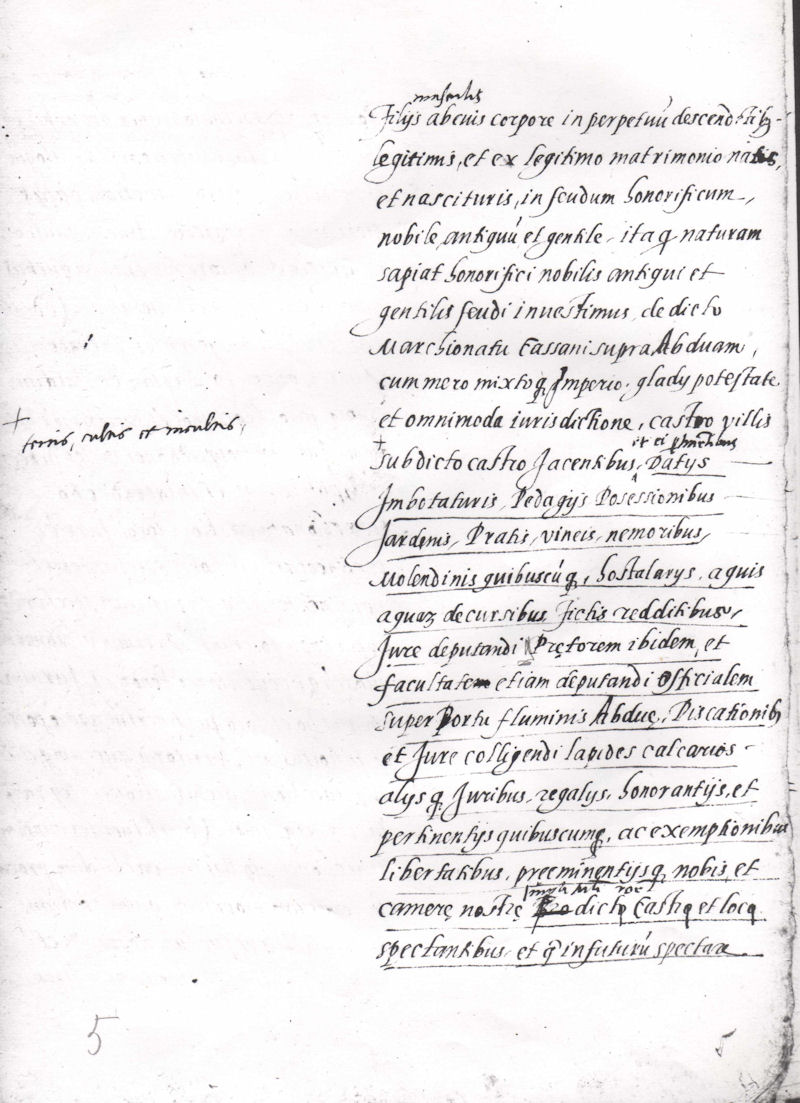 masculis
Filijs ab eius corpore in perpetuũ descendẽtib9
legitimis, et ex legitimo matrimonio natis,
et nascituris, in feudum honorificum
nobile, antiquũ et gentile, ita q naturam
sapiat honorifici nobilis antiqui et
gentilis feudi inuestimus, de dicto
Marchionatu Cassani supra Abduam,
cum mero mixtoq Imperio, glady potestate
et omnimoda iurisdictione, castro villis
+
terris, cultis et incultis,
+ et ei
Subdicto castro Jacentibus, Datijs
Imbotaturis, Pedagijs Posessionibus
Jardenis, Pratis, vineis, nemoribus,
Molendinis quibuscũq, hostalarys, aquis
aquaz decursibus fictis redditibus,
Jure deputandi Prętorem ibidem, et
facultatem etiam deputandi Officialem
super Portu fluminis Abduę, Piscationib9
et Jure colligendi lapides calcarios
alys q Juribus, regalys, honorantijs, et
pertinentijs quibuscumq, ac exemptionibus
libertatibus, preeminentijsq nobis, et
camerę nostrę dicto Castro et loco
spectantibus, et q̃ in futurũ spectare
5